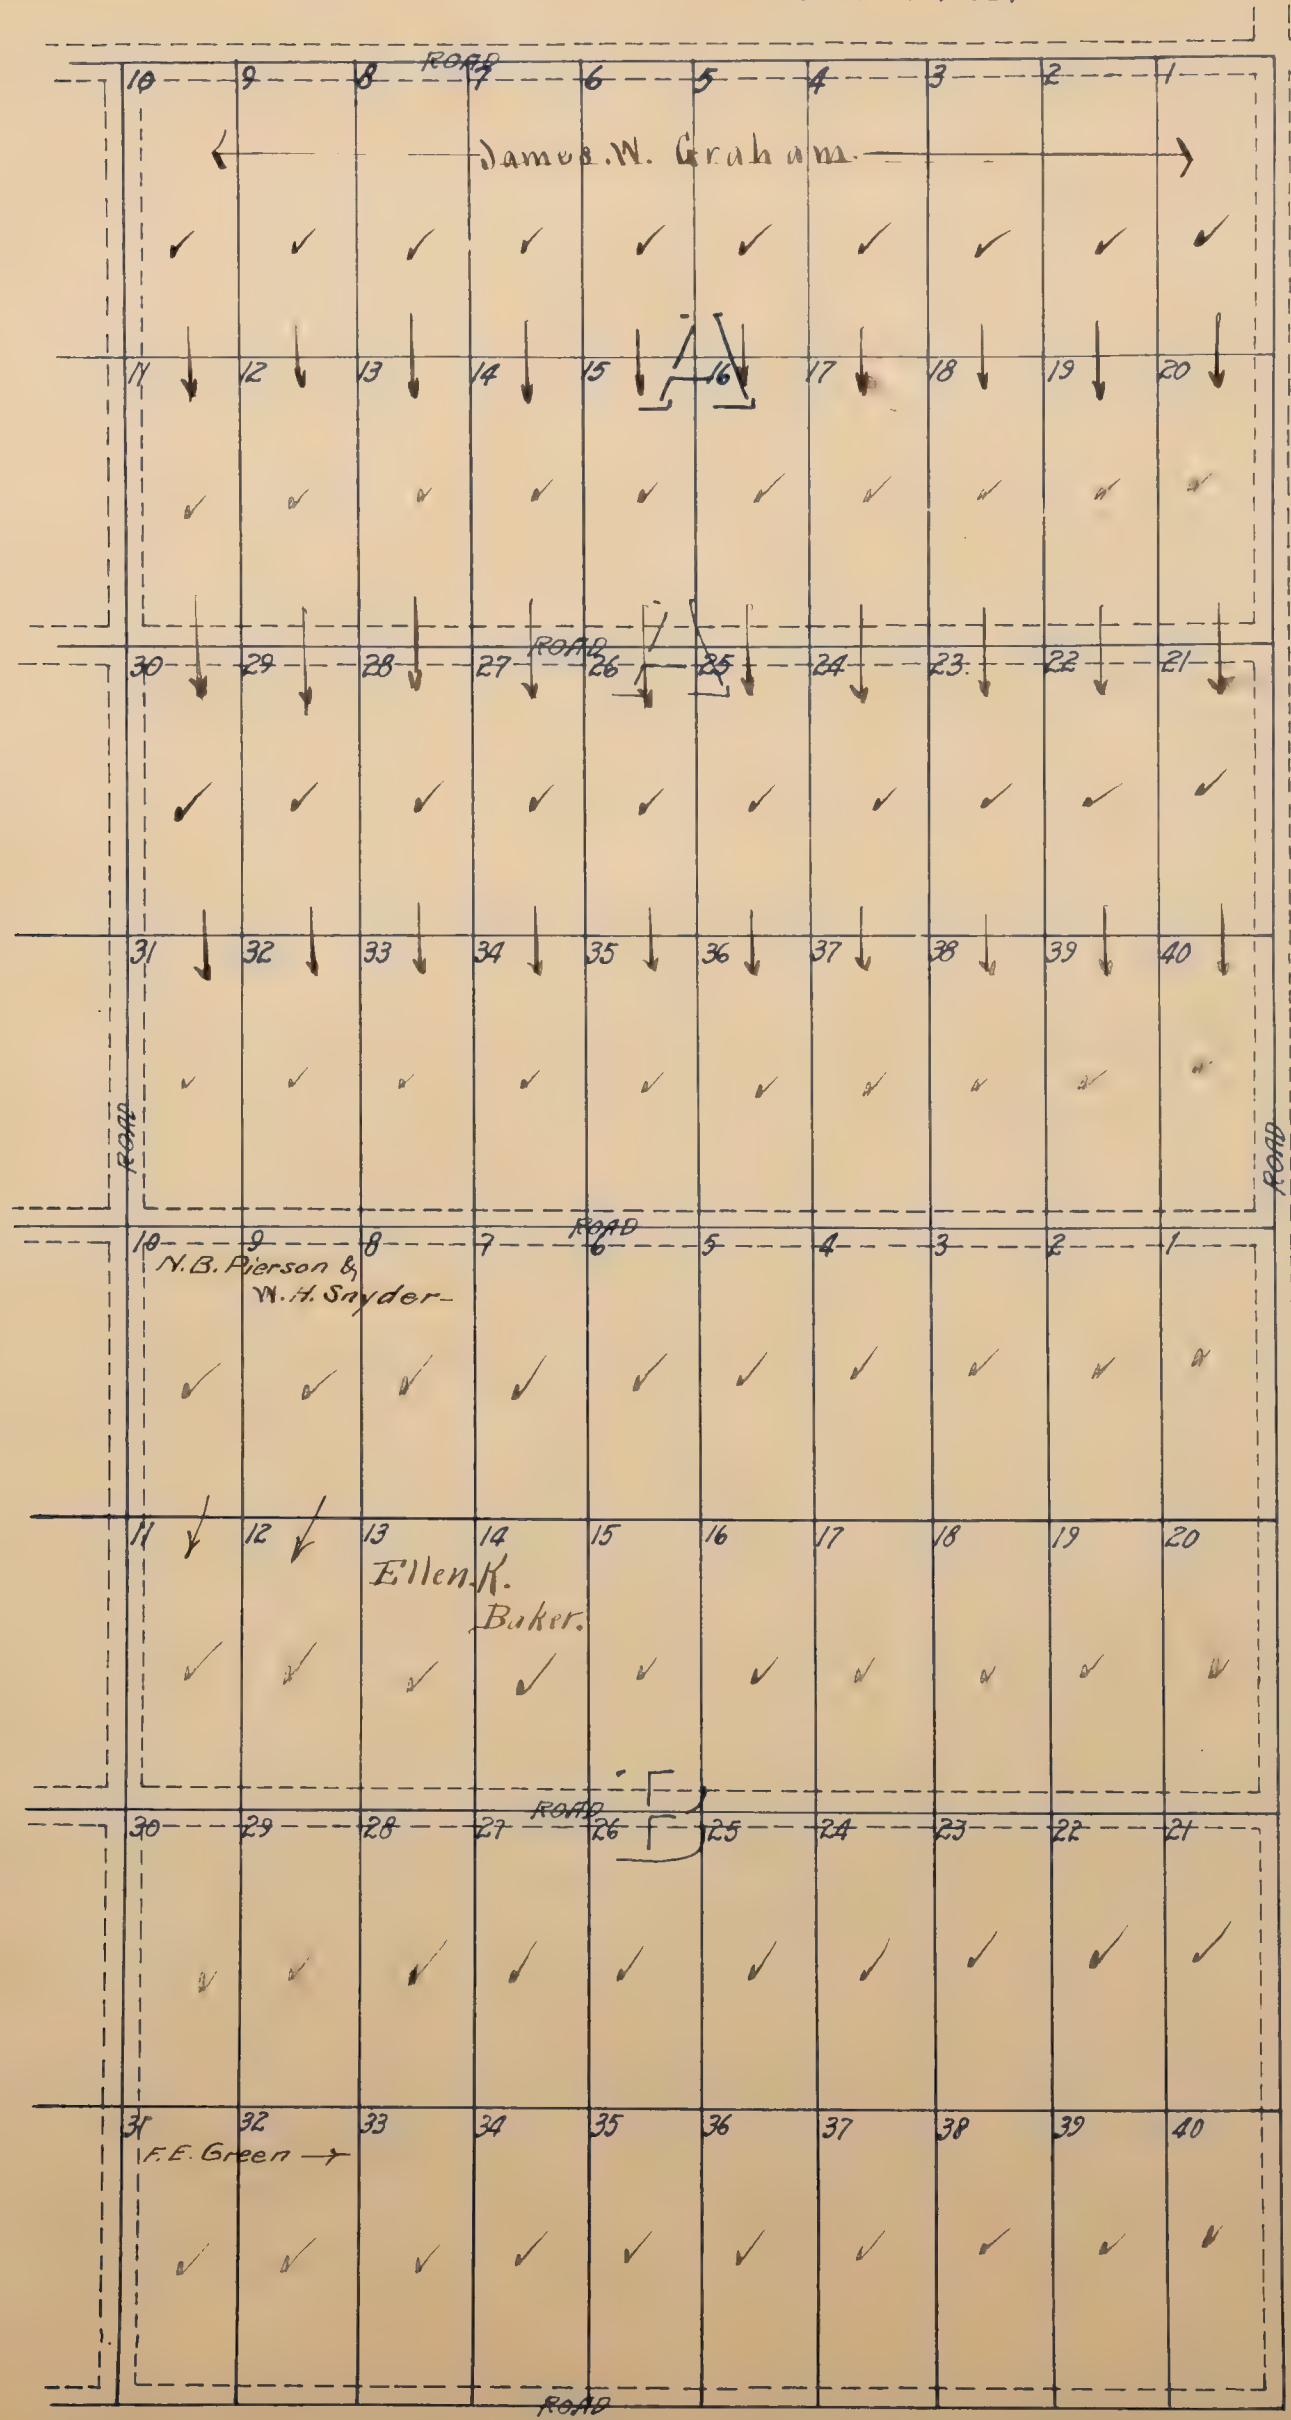 ROAD
10 9 8 7 6 5 4 3 2 1
James.W. Graham.
11 12 13 14 15 16 17 18 19 20
ROAD
30 29 28 27 26 25 24 23. 22 21
31 32 33 34 35 36 37 38 39 40
ROAD
ROAD
ROAD
10 9 8 7 6 5 4 3 2 1
N.B. Pierson &
W.H. Snyder
11 12 13 14 15 16 17 18 19 20
Ellen.K.
Baker.
ROAD
30 29 28 27 26 25 24 23 22 21
31 32 33 34 35 36 37 38 39 40
F.E. Green
ROAD